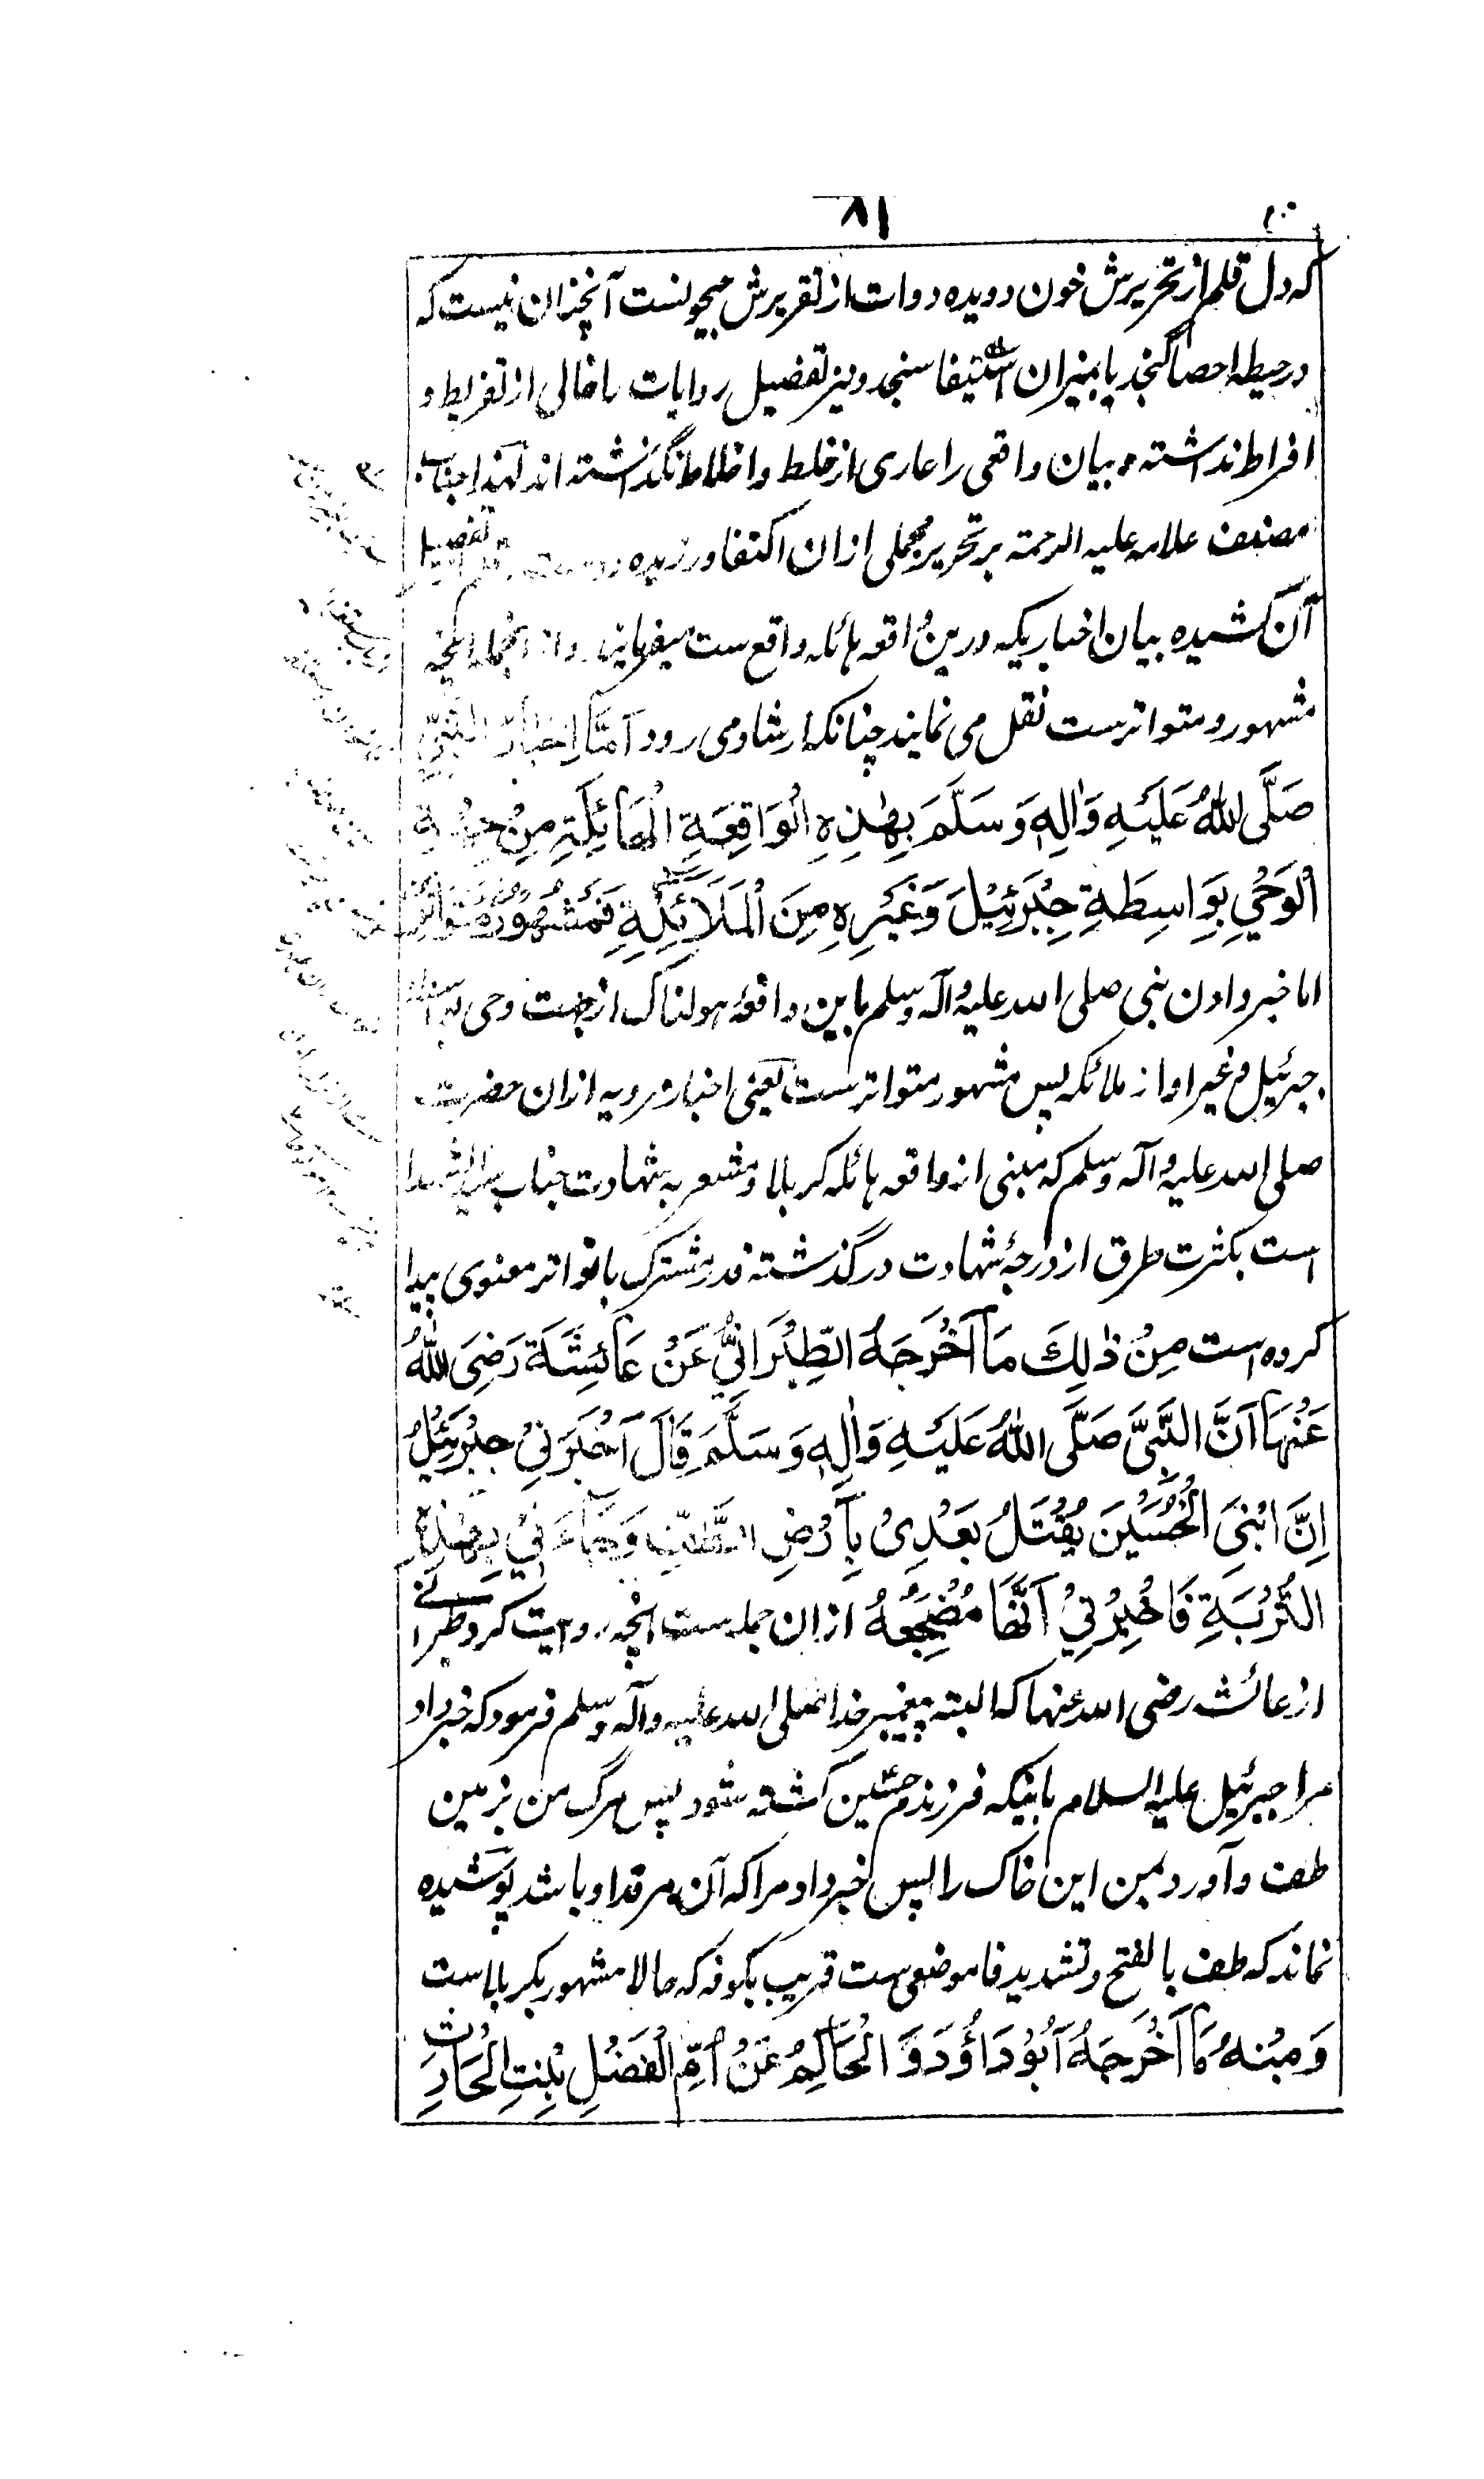 ۸۱
که دل قلم از تحریرش خون و دیده دوات از تقریرش جیحونست آنچنان نیست که
در حیطه احصا گنجد یا بمیزان استیفا سنجد و نیز تفصیل روایات را خالی از تفریط و
افراط نداشته و بیان واقعی را عاری از خلط و اخلاط نگذاشته اند لهذا جناب
مصنف علامه علیه الرحمة بر تحریر مجملی از ان اکتفا ورزیده تفصیل
آن کشیده بیان اخباریکه درین واقعه هائله واقع ست میفرمایند و از انجمله انچه
مشهور و متواترست نقل می نمایند چنانکه ارشاد می رود اَمَّا اِخْبَارُ النَّبِیِّ
صَلَّی اللهُ عَلَیْهِ وَاٰلِهٖ وَسَلَّمَ بِهٰذِهِ الْوَاقِعَةِ الْهَائِلَةِ مِنْ جِهَةِ
الْوَحْیِ بِوَاسِطَةِ جِبْرَئِیْلَ وَغَیْرِهٖ مِنَ الْمَلَائِکَةِ فَمَشْهُوْرٌ مُتَوَاتِرٌ
اما خبر دادن نبی صلی الله علیه وآله وسلم باین واقعهٔ هولناک از جهت وحی بواسطه
جبرئیل و غیر او از ملائکه پس مشهور متواترست یعنی اخبار مرویه ازان حضرت
صلی الله علیه وآله وسلم که مبنی از واقعه هائله کربلا و مشعر به شهادت جناب سید الشهدا
است بکثرت طرق از درجهٔ شهادت درگذشته قدر مشترک با تواتر معنوی پیدا
کرده است مِنْ ذٰلِکَ مَا اَخْرَجَهُ الطِّبْرَانِیُّ عَنْ عَائِشَةَ رَضِیَ اللهُ
عَنْهَا اَنَّ النَّبِیَّ صَلَّی اللهُ عَلَیْهِ وَاٰلِهٖ وَسَلَّمَ قَالَ اَخْبَرَنِیْ جِبْرَئِیْلُ
اِنَّ ابْنِیَ الْحُسَیْنَ یُقْتَلُ بَعْدِیْ بِاَرْضِ الطَّفِّ وَجَاءَنِیْ بِهٰذِهِ
التُّرْبَةِ فَاَخْبَرَنِیْ اَنَّهَا مَضْجَعُهُ ازان جمله ست انچه روایت کرد طبرانی
از عائشه رضی الله عنها که البته پیغمبر خدا صلی الله علیه وآله وسلم فرمود که خبر داد
مرا جبرئیل علیه السلام باینکه فرزندم حسین کشته شود پس مرگ من بزمین
طف و آورد بمن این خاک را پس خبر داد مرا که آن مرقد او باشد پوشیده
نماند که طف بالفتح و تشدید فا موضعی ست قریب بکوفه که حالا مشهور بکربلاست
وَمِنْهُ مَا اَخْرَجَهُ اَبُوْ دَاؤدَ وَ الْحَاکِمُ عَنْ اُمِّ الْفَضْلِ بِنْتِ الْحَارِثِ